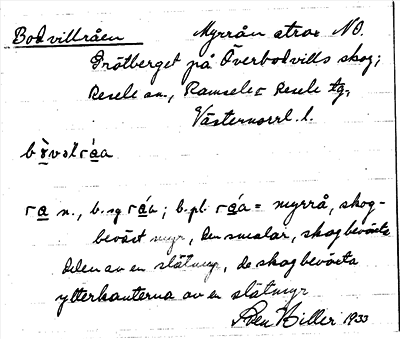 Bodvillråen Myrrån strax NO.
Grötberget på Överbodvills skog;
Resele sn., Ramsele o Resele tg,
Västernorrl. l.
bòvəlráa
ra n., b. sg ráa; b. pl. ráa = myrrå, skog-
beväxt myr, den smalar, skogbeväxta
delen av en slåtmyr, de skogbeväxta
ytterkanterna av en slåtmyr
1933